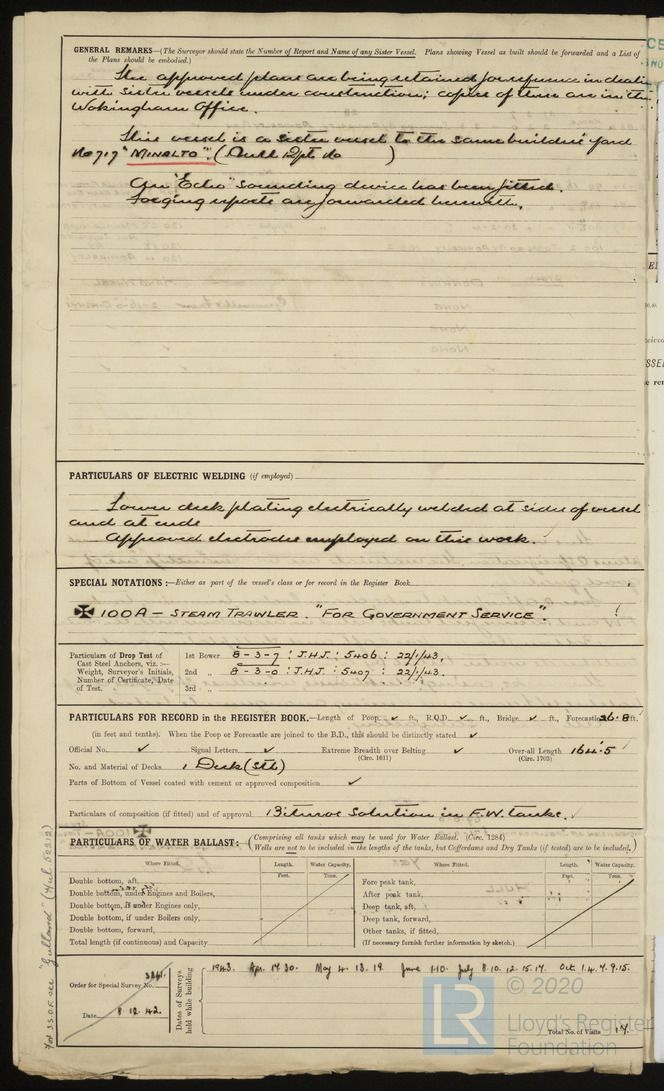 GENERAL REMARKS—(The Surveyor should state the Number of Report and Name of any Sister Vessel. Plans showing Vessel as built should be forwarded and a List of
the Plans should be embodied.)
The approved plans are being retained for reference in dealing
with sister vessels under construction; copies of these are in the
Wokingham Office.
This vessel is a sister vessel to the same builders' yard
No 717 "MINALTO". (Hull Rpt No )
An "Echo" sounding device has been fitted.
Forging reports are forwarded herewith.
PARTICULARS OF ELECTRIC WELDING (if employed)
Lower deck plating electrically welded at sides of vessel
and at ends
Approved electrodes employed on this work.
SPECIAL NOTATIONS :—Either as part of the vessel's class or for record in the Register Book
✠ 100A – STEAM TRAWLER. "FOR GOVERNMENT SERVICE".
Particulars of Drop Test of
Cast Steel Anchors, viz.:—
Weight, Surveyor's Initials,
Number of Certificate, Date
of Test.
1st Bower 8-3-7 : J.H.J. : 5406 : 22/1/43.
2nd „ 8-3-0 : J.H.J. : 5407 : 22/1/43.
3rd „
PARTICULARS FOR RECORD in the REGISTER BOOK.—Length of Poop ✓ ft., R.Q.D. ✓ ft., Bridge ✓ ft., Forecastle 26.8 ft.
(in feet and tenths). When the Poop or Forecastle are joined to the B.D., this should be distinctly stated ✓
Official No. ✓ Signal Letters ✓ Extreme Breadth over Belting ✓ Over-all Length 164.5
(Circ. 1611) (Circ. 1703)
No. and Material of Decks 1 Deck (Stl)
Parts of Bottom of Vessel coated with cement or approved composition ✓
Particulars of composition (if fitted) and of approval Bitumos Solution in F.W. tanks.
PARTICULARS OF WATER BALLAST: (Comprising all tanks which may be used for Water Ballast. (Circ. 1284)
Wells are not to be included in the lengths of the tanks, but Cofferdams and Dry Tanks (if tested) are to be included.)
Where Fitted. Length. Water Capacity. Where Fitted. Length. Water Capacity.
Feet. Tons. Feet. Tons.
Double bottom, aft, Fore peak tank,
Double bottom, under Engines and Boilers, After peak tank,
Double bottom, if under Engines only, Deep tank, aft,
Double bottom, if under Boilers only, Deep tank, forward,
Double bottom, forward, Other tanks, if fitted,
Total length (if continuous) and Capacity (If necessary furnish further information by sketch.)
Order for Special Survey No.
Date 8.12.42.
Dates of Surveys
held while building
1943. Apr. 14 30. May 4. 13. 19. June 1.10. July 8.10.12.15.17. Oct 1.4.7.9.15.
Total No. of Visits 17.
For S.S.O.F. see "Gulland" (Hul 52212)
© 2020
Lloyd's Register
Foundation
LR